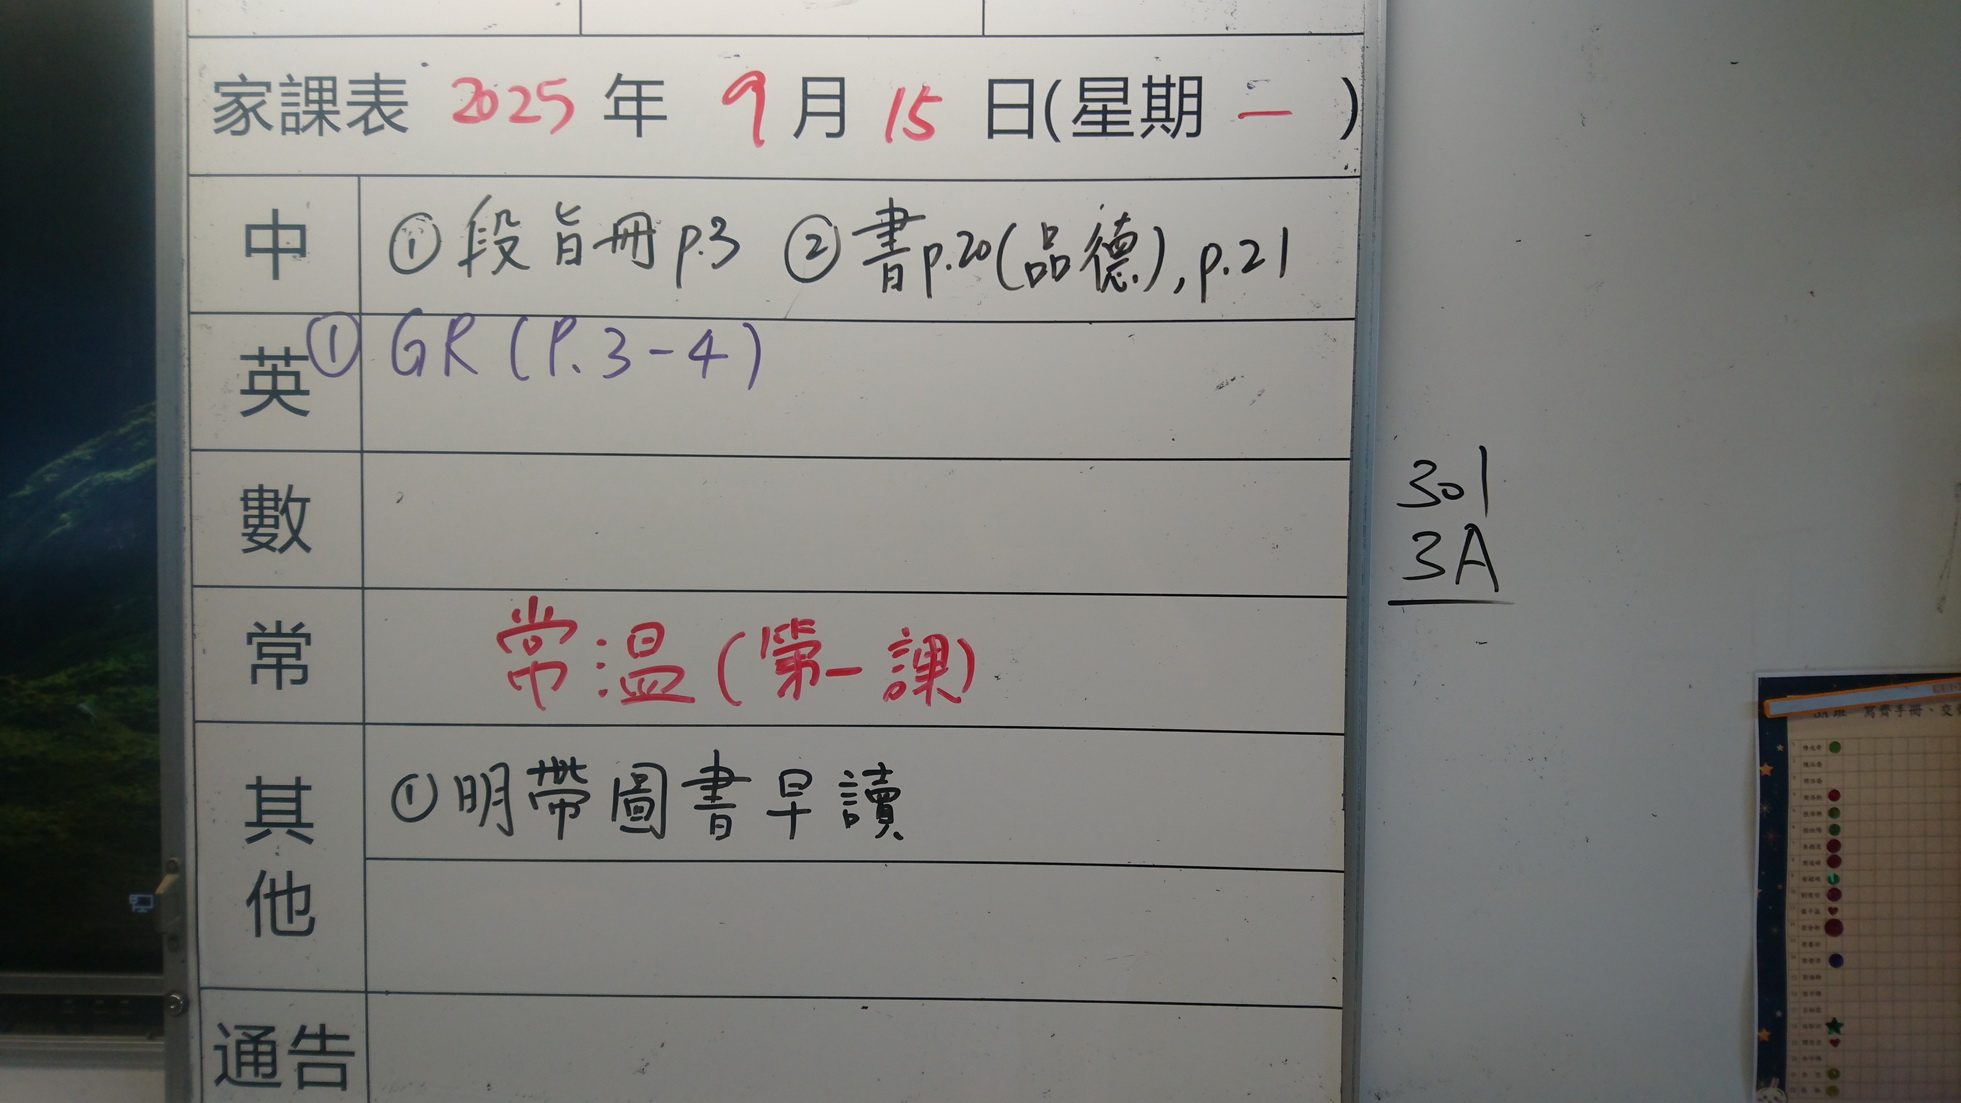 家課表 2025 年 9 月 15 日(星期 一 )
中 ① 段旨冊 p.3 ② 書p.20(品德), p.21
英 ① GR (P. 3-4)
數
常 常溫 (第一課)
其他 ① 明帶圖書早讀
通告
301
3A
寫齊手冊、交